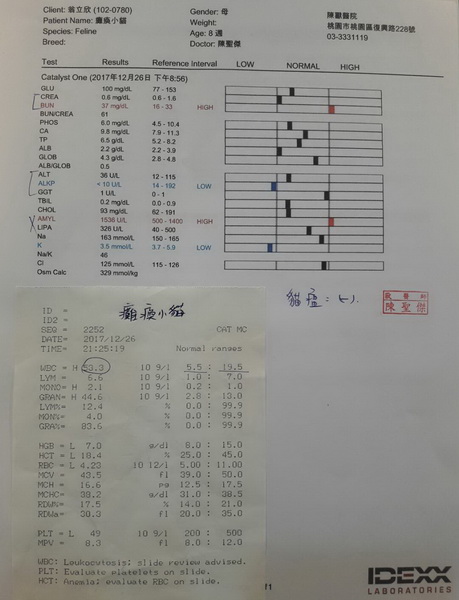 Client: 翁立欣 (102-0780)
Patient Name: 癱瘓小貓
Species: Feline
Breed:
Gender: 母
Weight:
Age: 8 週
Doctor: 陳聖傑
陳獸醫院
桃園市桃園區復興路228號
03-3331119
Test Results Reference Interval LOW NORMAL HIGH
Catalyst One (2017年12月26日 下午8:56)
GLU 100 mg/dL 77 - 153
CREA 0.6 mg/dL 0.6 - 1.6
BUN 37 mg/dL 16 - 33 HIGH
BUN/CREA 61
PHOS 6.0 mg/dL 4.5 - 10.4
CA 9.8 mg/dL 7.9 - 11.3
TP 6.5 g/dL 5.2 - 8.2
ALB 2.2 g/dL 2.2 - 3.9
GLOB 4.3 g/dL 2.8 - 4.8
ALB/GLOB 0.5
ALT 36 U/L 12 - 115
ALKP < 10 U/L 14 - 192 LOW
GGT 1 U/L 0 - 1
TBIL 0.2 mg/dL 0.0 - 0.9
CHOL 93 mg/dL 62 - 191
AMYL 1536 U/L 500 - 1400 HIGH
LIPA 326 U/L 40 - 500
Na 163 mmol/L 150 - 165
K 3.5 mmol/L 3.7 - 5.9 LOW
Na/K 46
Cl 125 mmol/L 115 - 126
Osm Calc 329 mmol/kg
貓瘟: (-).
獸醫師
陳聖傑
ID =
癱瘓小貓
ID2 =
SEQ = 2252 CAT MC
DATE= 2017/12/26
TIME= 21:25:19 Normal ranges
WBC= H 53.3 10 9/l 5.5 : 19.5
LYM = 6.6 10 9/l 1.0 : 7.0
MONO= H 2.1 10 9/l 0.2 : 1.0
GRAN= H 44.6 10 9/l 2.8 : 13.0
LYM%= 12.4 % 0.0 : 99.9
MON%= 4.0 % 0.0 : 99.9
GRA%= 83.6 % 0.0 : 99.9
HGB = L 7.0 g/dl 8.0 : 15.0
HCT = L 18.4 % 25.0 : 45.0
RBC = L 4.23 10 12/l 5.00 : 11.00
MCV = 43.5 fl 39.0 : 50.0
MCH = 16.6 pg 12.5 : 17.5
MCHC= 38.2 g/dl 31.0 : 38.5
RDW%= 17.5 % 14.0 : 21.0
RDWa= 30.3 fl 20.0 : 35.0
PLT = L 49 10 9/l 200 : 500
MPV = 8.3 fl 8.0 : 12.0
WBC: Leukocytosis: slide review advised.
PLT: Evaluate platelets on slide.
HCT: Anemia: evaluate RBC on slide.
IDEXX
LABORATORIES